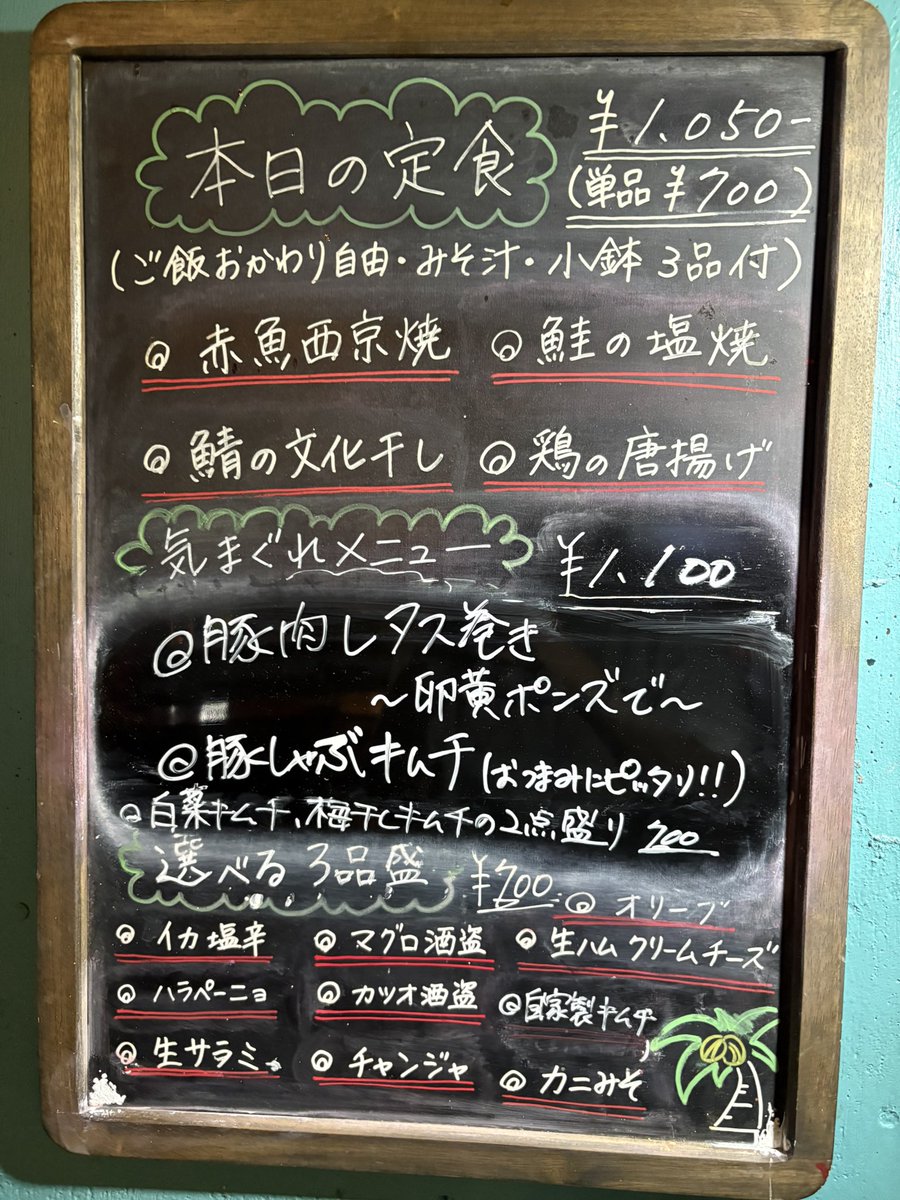 本日の定食 ¥1.050-
(単品¥700)
(ご飯おかわり自由・みそ汁・小鉢3品付)
◎赤魚西京焼 ◎鮭の塩焼
◎鯖の文化干し ◎鶏の唐揚げ
気まぐれメニュー ¥1.100
◎豚肉レタス巻き
〜卵黄ポンズで〜
◎豚しゃぶキムチ(おつまみにピッタリ!!)
◎白菜キムチ、梅干しキムチの2点盛り 700
選べる3品盛 ¥700.
◎オリーブ
◎イカ塩辛 ◎マグロ酒盗 ◎生ハムクリームチーズ
◎ハラペーニョ ◎カツオ酒盗 ◎自家製キムチ
◎生サラミ ◎チャンジャ ◎カニみそ